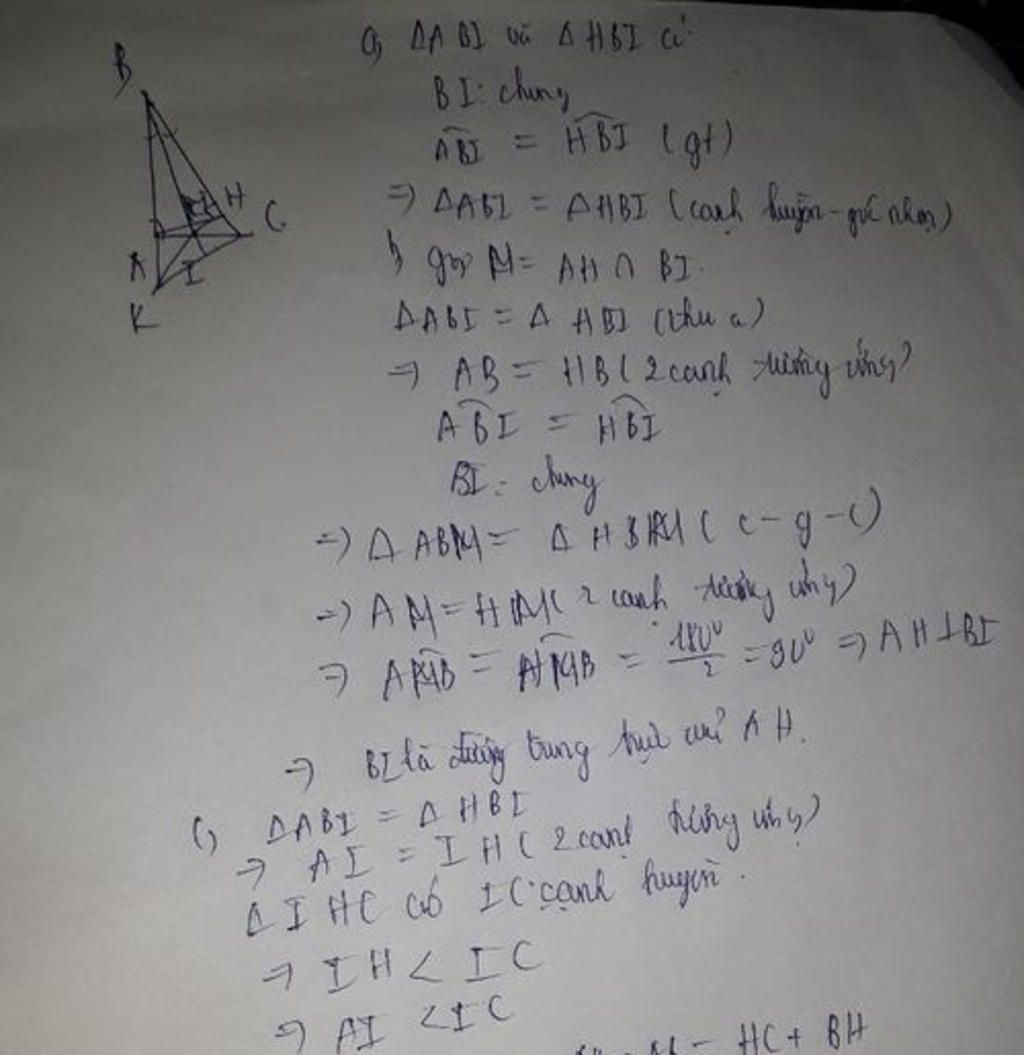 B
H
C
A
I
K
a, ΔABI và ΔHBI có:
BI: chung
ABI = HBI (gt)
=> ΔABI = ΔHBI (cạnh huyền-góc nhọn)
b, gọi M = AH ∩ BI.
ΔABI = Δ HBI (theo a)
=> AB = HB (2 cạnh tương ứng)
ABI = HBI
BI: chung
=> Δ ABM = Δ HBM (c-g-c)
=> AM = HM (2 cạnh tương ứng)
=> AMB = HMB = 180⁰/2 = 90⁰ => AH⊥BI
=> BI là đường trung trực của AH.
c, ΔABI = Δ HBI
=> AI = IH (2 cạnh tương ứng)
Δ IHC có IC: cạnh huyền.
=> IH < IC
=> AI < IC
HC + BH